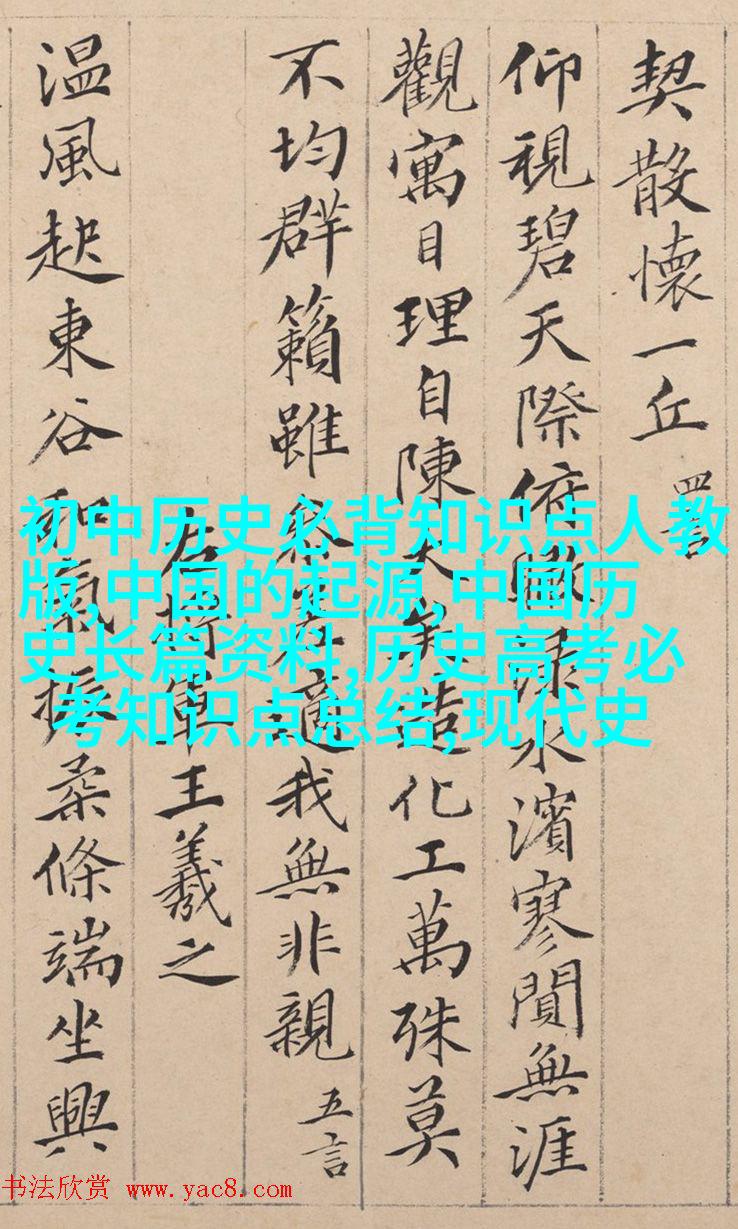 契散懷一丘 四言
仰視碧天際俯瞰淥水濱寥閴無涯
觀寓目理自陳大矣造化工萬殊莫
不均群籟雖參差適我無非親 五言
右將軍王羲之
温風起東谷和氣振柔條端坐興
初中历史必背知识点人教
版,中国的起源,中国历
史长篇资料,历史高考必
考知识点总结,现代史
书法欣赏 www.yac8.com